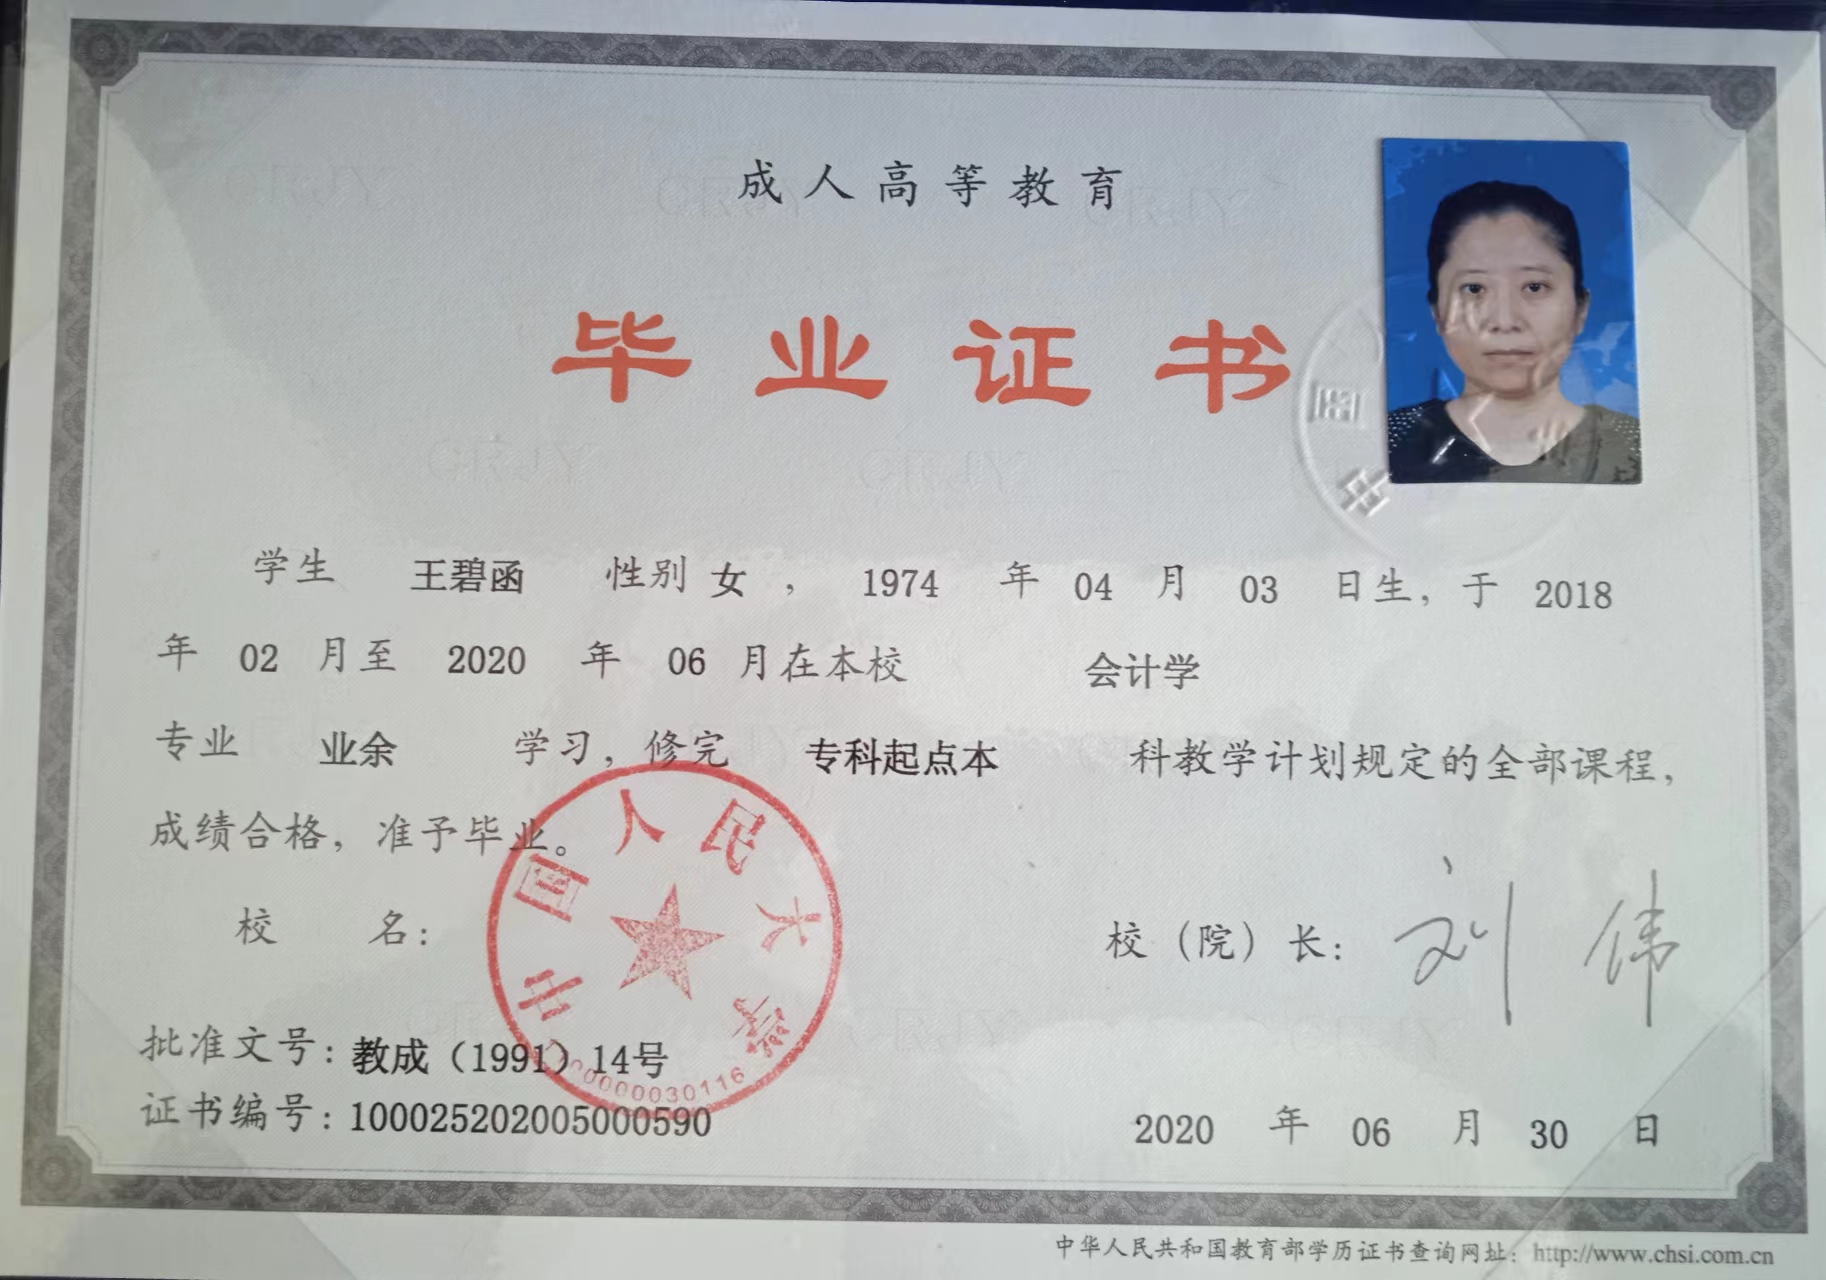 成人高等教育
毕业证书
学生 王碧函 性别 女 ， 1974 年 04 月 03 日生，于 2018
年 02 月至 2020 年 06 月在本校 会计学
专业 业余 学习，修完 专科起点本 科教学计划规定的全部课程，
成绩合格，准予毕业。
校 名：
中国人民大学
校（院）长： 刘伟
批准文号：教成（1991）14号
证书编号：100025202005000590
2020 年 06 月 30 日
中华人民共和国教育部学历证书查询网址：http://www.chsi.com.cn